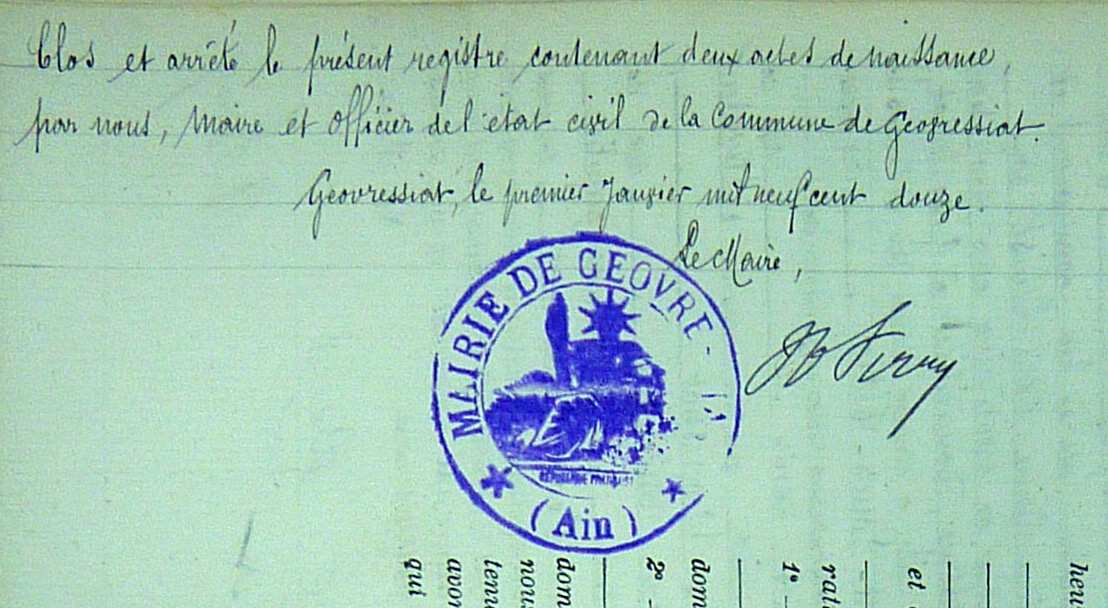 Clos et arrêté le présent registre contenant deux actes de naissance,
par nous, Maire et Officier de l'état civil de la Commune de Geovressiat.
Geovressiat, le premier Janvier mil neuf cent douze.
Le Maire,
MAIRIE DE GEOVRE
RÉPUBLIQUE FRANÇAISE
(Ain)
heu
et
rat
1°
dom
2°
dom
nous
tenu
avon
qui